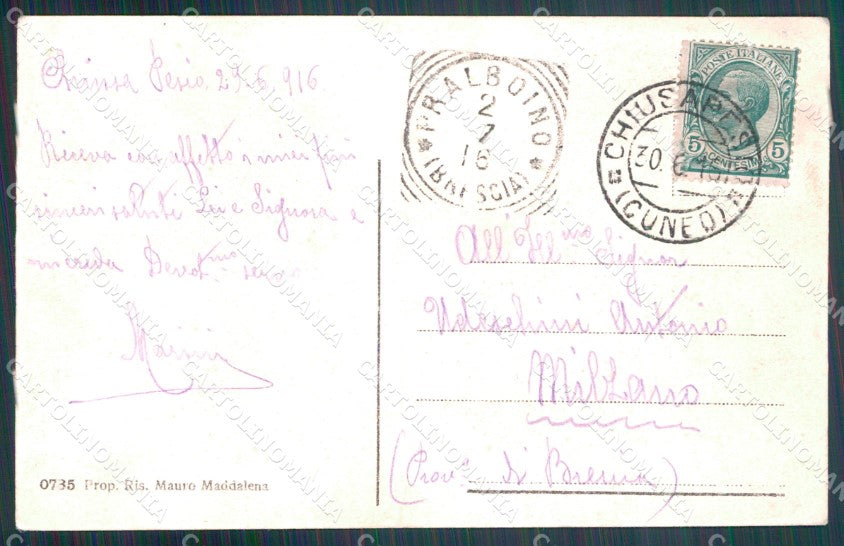 Chiusa Pesio 29.6.916
Riceva con affetto i miei più
sinceri saluti Lei e Signora e
mi creda Devot.mo
0735 Prop. Ris. Mauro Maddalena
PRALBOINO
2
7
16
(BRESCIA)
CHIUSA PES
30.6.
(CUNEO)
POSTE ITALIANE
5 CENTESIMI 5
All' Ill.mo Signor
Udeschini Antonio
Milzano
(Prov. di Brescia)
CARTOLINOMANIA